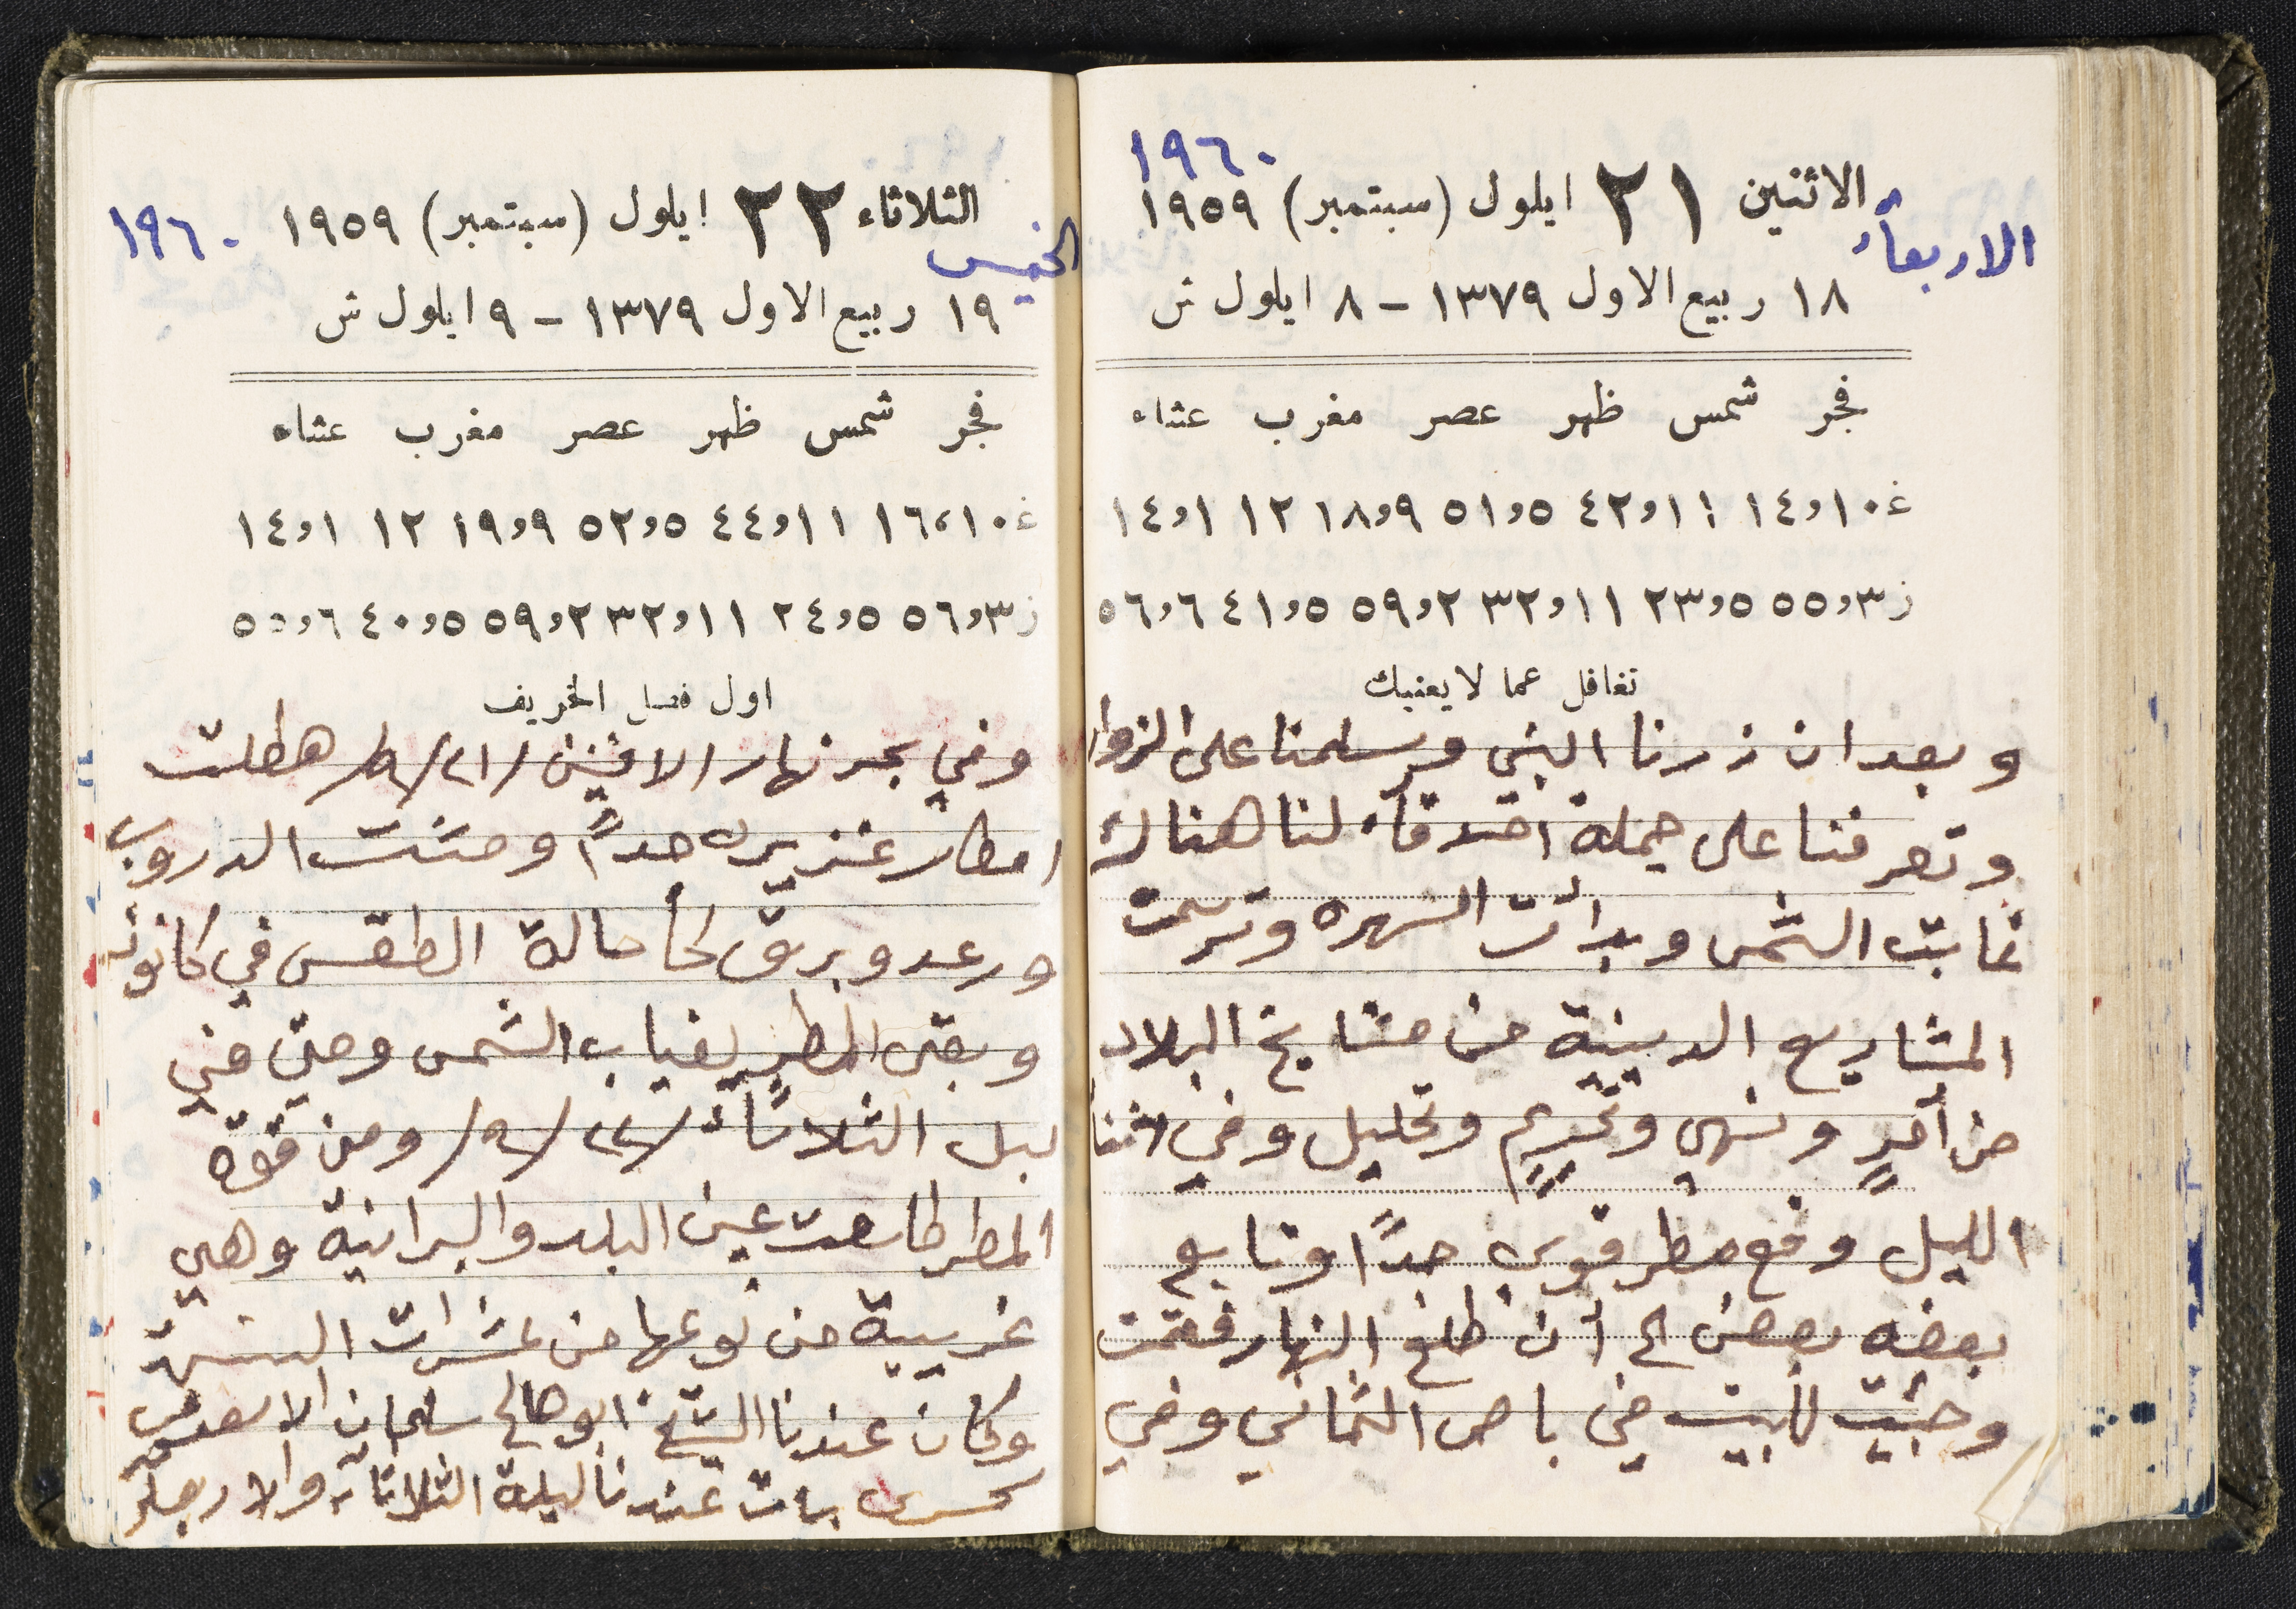 ١٩٦٠
الاثنين ٢١ ايلول (سبتمبر) ١٩٥٩
الاربعاء
١٨ ربيع الاول ١٣٧٩ – ٨ ايلول ش
فجر شمس ظهر عصر مغرب عشاء
غ ١٠و١٤ ١١و٤٢ ٥و٥١ ٩و١٨ ١٢ ١و١٤
ز ٣و٥٥ ٥و٢٣ ١١و٣٢ ٢و٥٩ ٥و٤١ ٦و٥٦
تغافل عما لا يعنيك
وبعد ان زرنا النبي وسلمنا على الزوار
وتعرفنا على جملة اصدقاء لنا هناك
غابت الشمس وبدأت السهره وترسمت
المشاريع الدينية من مشايخ البلاد
من أمرٍ ونهي وتحريمٍ وتحليل وفي اثنا
الليل وقع مطر قوي جداً وتابع
بعضه بعض الى أن طلع النهار فقمت
وجئيت للبيت في باص الثماني وفي
الثلاثاء ٢٢ ايلول (سبتمبر) ١٩٥٩ ١٩٦٠
الخميس
١٩ ربيع الاول ١٣٧٩ – ٩ ايلول ش
فجر شمس ظهر عصر مغرب عشاء
غ ١٠،١٦ ١١و٤٤ ٥و٥٢ ٩و١٩ ١٢ ١و١٤
ز ٣و٥٦ ٥و٢٤ ١١و٣٢ ٢و٥٩ ٥و٤٠ ٦و٥٥
اول فصل الخريف
وفي بحر نهار الاثنين /٢١/٩/ هطلت
امطار غزيره جداً ومشت الدروب
ورعد وبرق كأ حالة الطقس في كانون
وبقى المطر لغياب الشمس وحتى في
ليل الثلاثاء /٢٢/٩/ ومن قوة
المطر طاهت عين البلد والبرانية وهي
غريبة من نوعها من عشرات السنين
وكان عندنا الشيخ ابو صالح سلمان الاسعد من
بات عندنا ليلة الثلاثاء والاربعاء